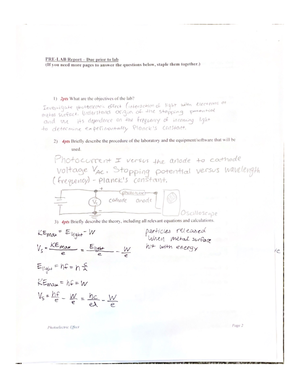 PRE-LAB Report - Due prior to lab
(If you need more pages to answer the questions below, staple them together.)
1) 2pts What are the objectives of the lab?
Investigate photoelectric effect (interaction of light with electrons in
metal surface). Determine origin of the stopping potential
and its dependence on the frequency of incoming light
to determine experimentally Planck's constant.
2) 4pts Briefly describe the procedure of the laboratory and the equipment/software that will be
used.
Photocurrent I versus the anode to cathode
voltage VAC. Stopping potential versus wavelength
(frequency) - Planck's constant.
cathode anode
Oscilloscope
3) 4pts Briefly describe the theory, including all relevant equations and calculations.
KEmax = Elight - W
particles released
when metal surface
hit with energy
Vs = KEmax/e = Elight/e - W/e
Elight = hf = h c/λ
KEmax = hf - W
Vs = hf/e - W/e = hc/eλ - W/e
Photoelectric Effect
Page 2